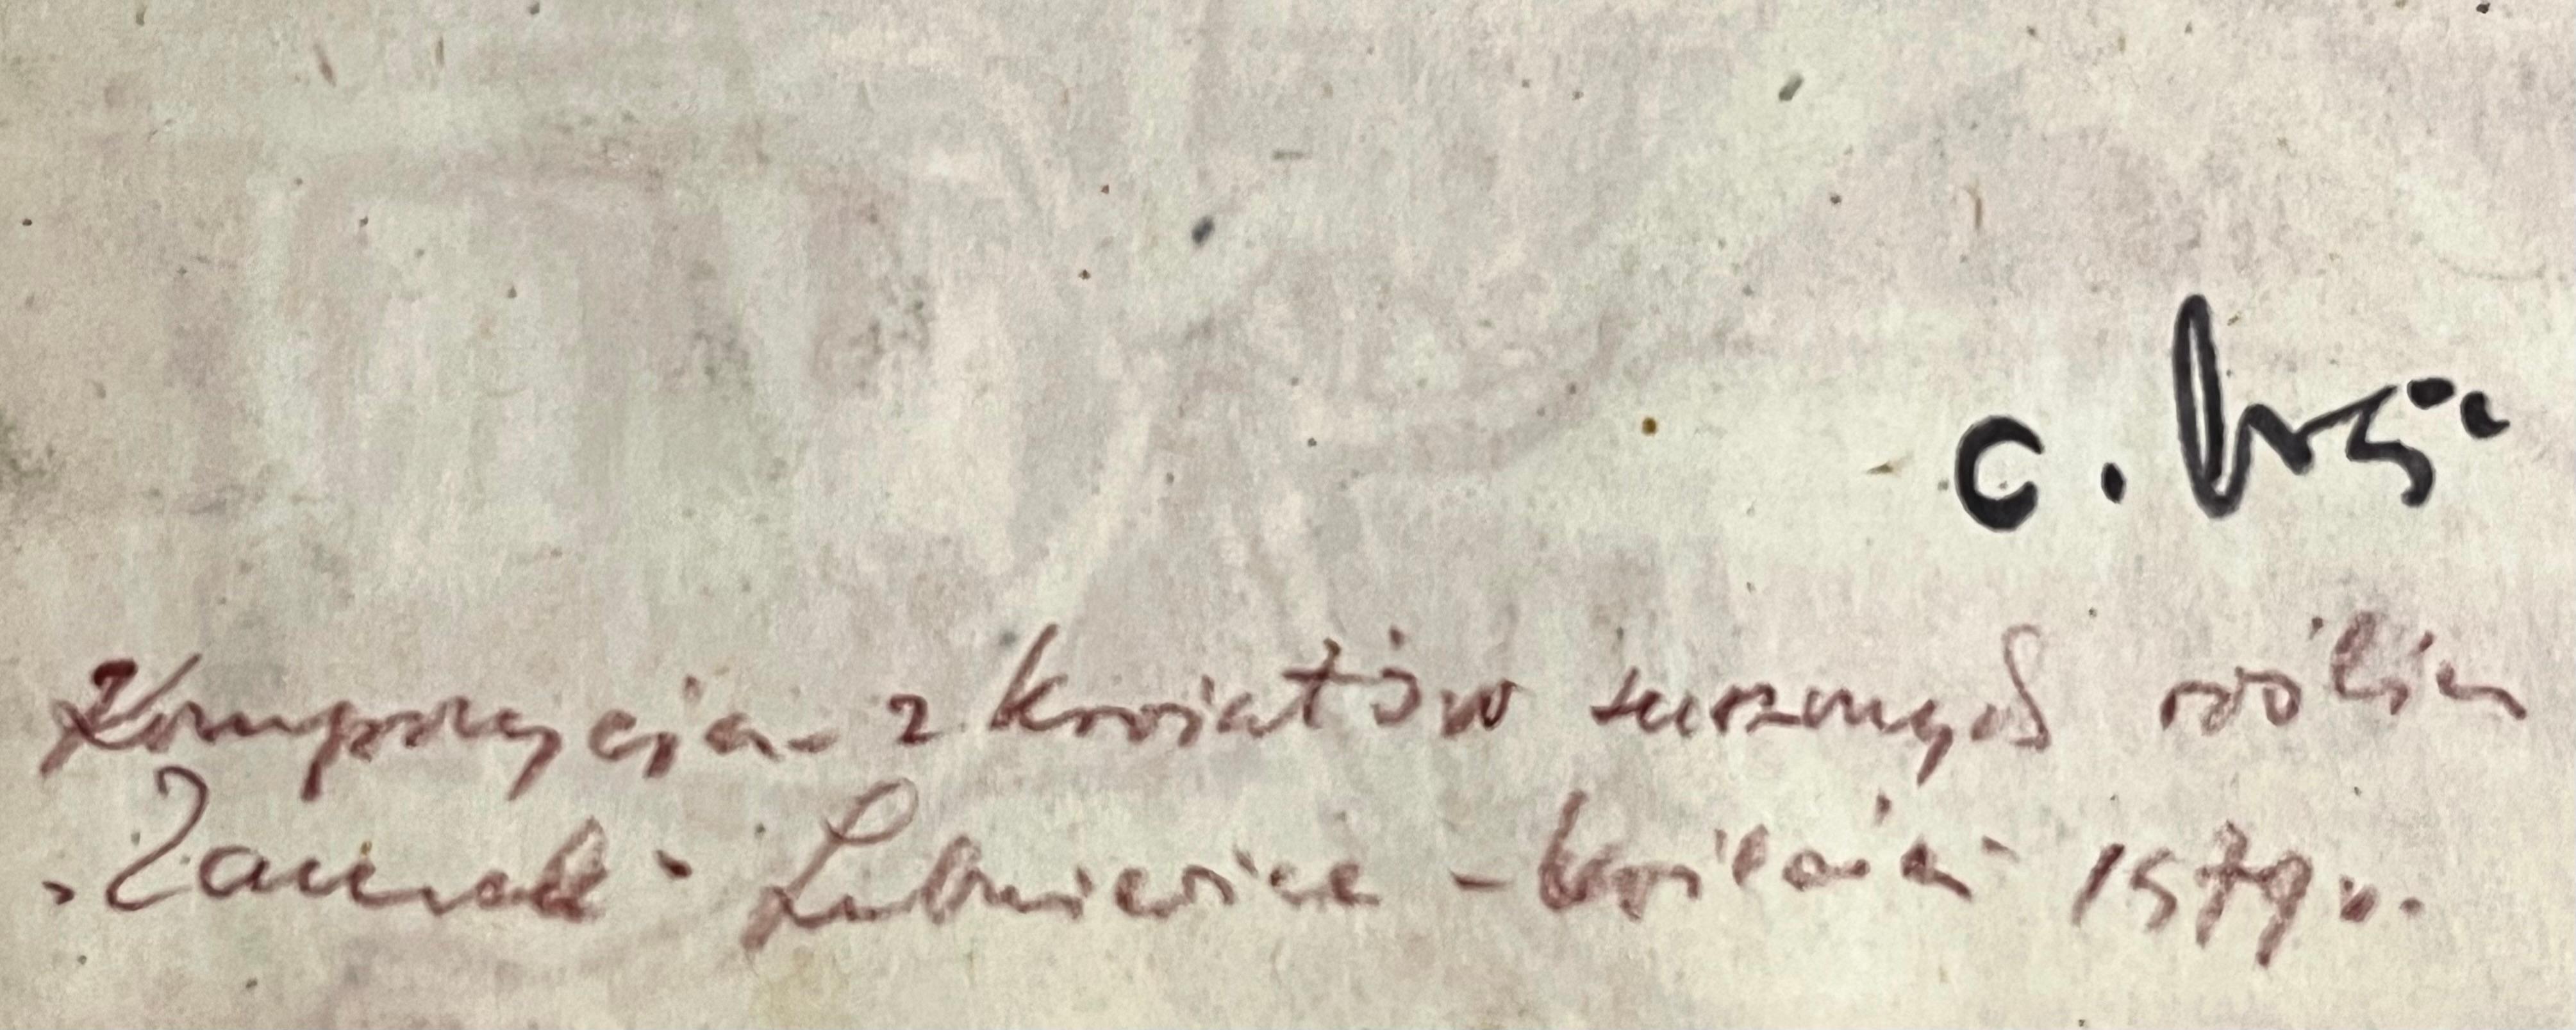 Kompozycja - z kwiatów suszonych roślin
"Zamek" Lubniewice - kwiecień 1979 r.